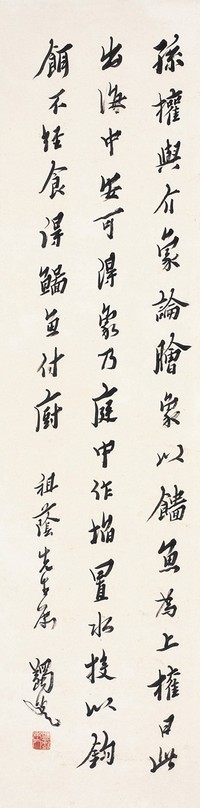 孫權與介象論膾象以鱕魚為上權曰此
出海中安可得象乃庭中作塪置水投以鉤
餌不經食得鱕魚付廚
祖蔭先生屬